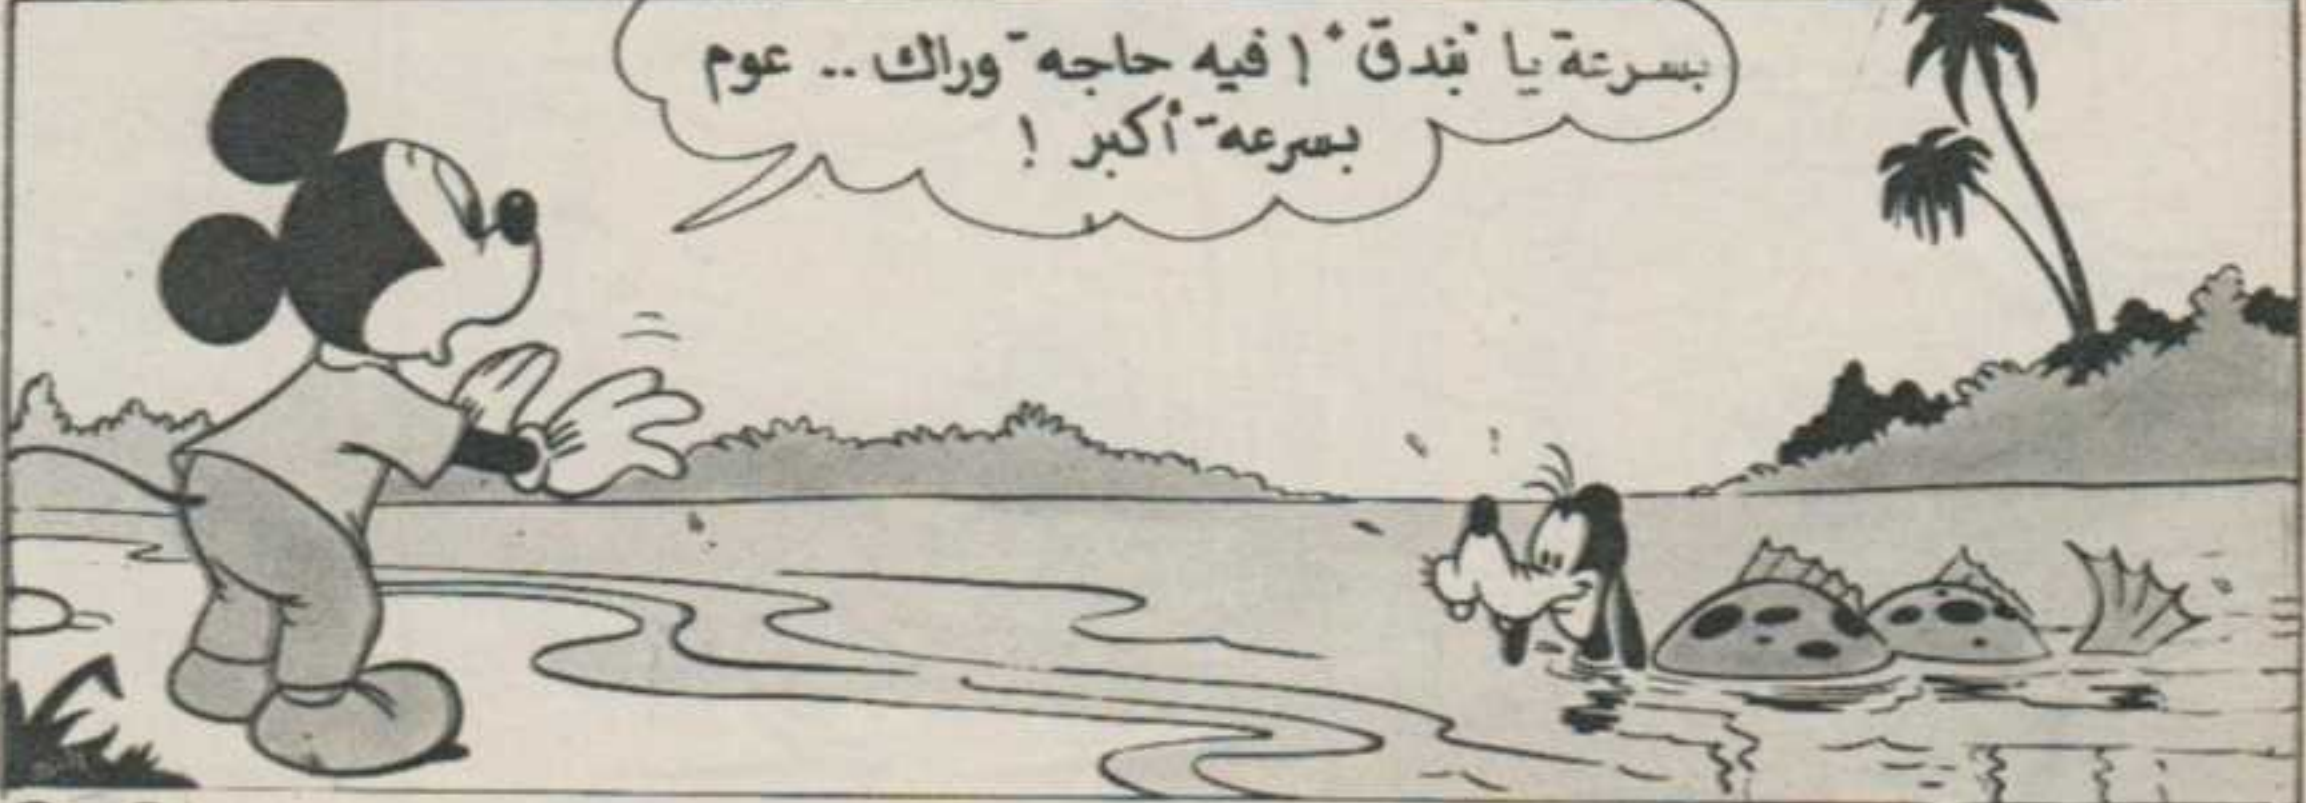 بسرعة يا "بندق" ! فيه حاجه وراك .. عوم
بسرعه أكبر !